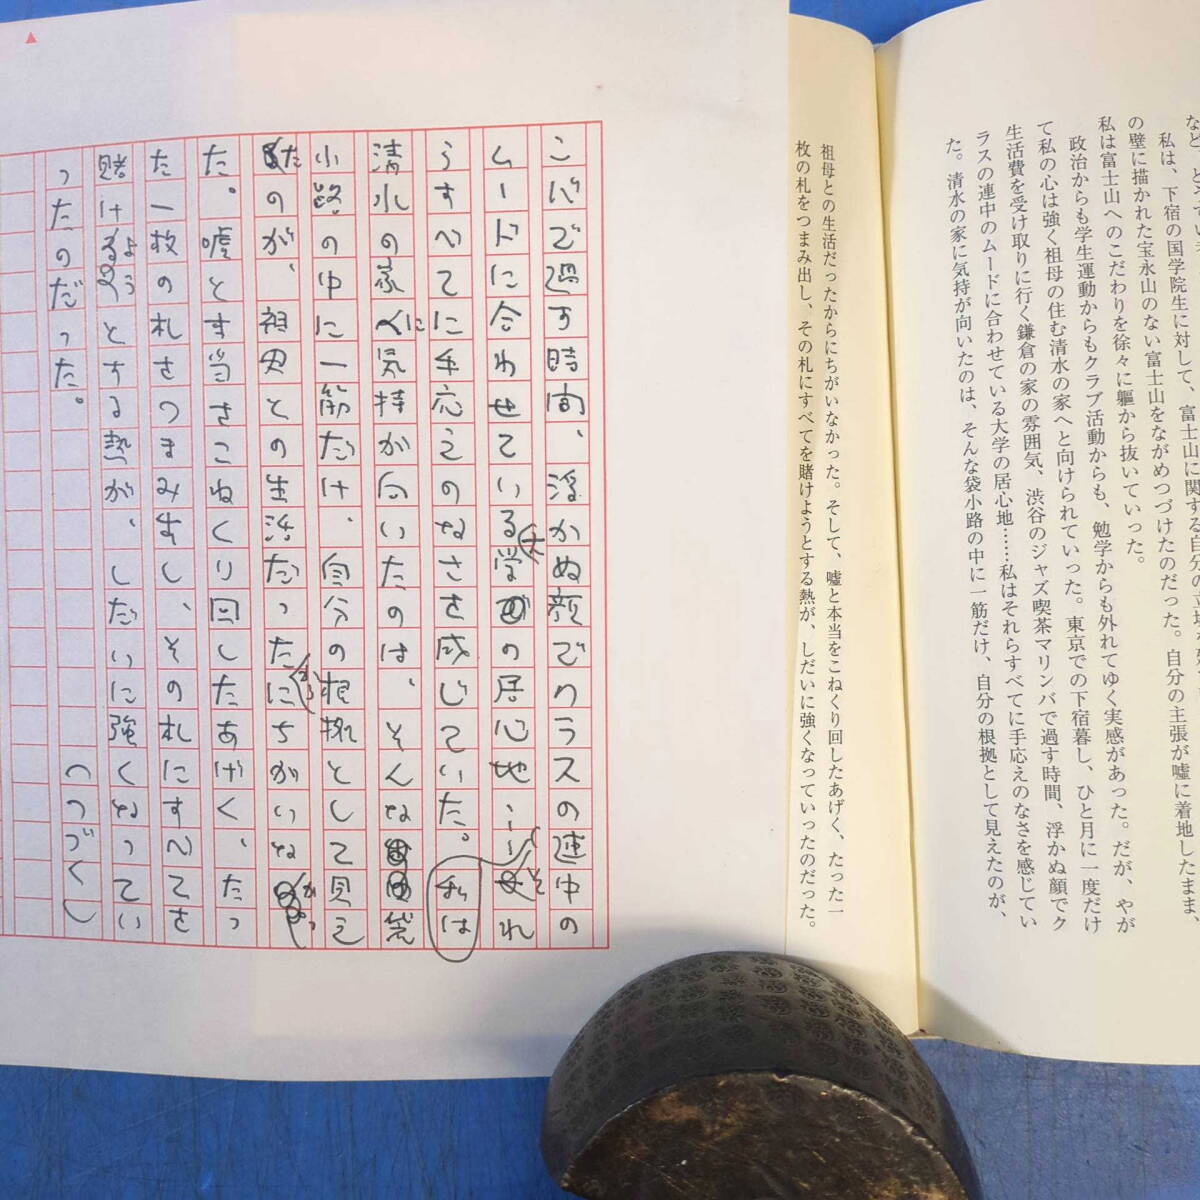 私は、下宿の国学院生に対して、富士山に関する自分の立場を
の壁に描かれた宝永山のない富士山をながめつづけたのだった。自分の主張が嘘に着地したまま、
私は富士山へのこだわりを徐々に軀から抜いていった。
政治からも学生運動からもクラブ活動からも、勉学からも外れてゆく実感があった。だが、やが
て私の心は強く祖母の住む清水の家へと向けられていった。東京での下宿暮し、ひと月に一度だけ
生活費を受け取りに行く鎌倉の家の雰囲気、渋谷のジャズ喫茶マリンバで過す時間、浮かぬ顔でク
ラスの連中のムードに合わせている大学の居心地……私はそれらすべてに手応えのなさを感じてい
た。清水の家に気持が向いたのは、そんな袋小路の中に一筋だけ、自分の根拠として見えたのが、
祖母との生活だったからにちがいなかった。そして、嘘と本当をこねくり回したあげく、たった一
枚の札をつまみ出し、その札にすべてを賭けようとする熱が、しだいに強くなっていったのだった。
こバで過す時間、浮かぬ顔でクラスの連中の
ムードに合わせている大学の居心地……それ
らすべてに手応えのなさを感じていた。私は
清水の家に気持が向いたのは、そんな袋
小路の中に一筋だけ、自分の根拠として見え
たのが、祖母との生活だったからにちがいなかっ
た。嘘と本当をこねくり回したあげく、たっ
た一枚の札をつまみ出し、その札にすべてを
賭けようとする熱が、しだいに強くなってい
ったのだった。（つづく）